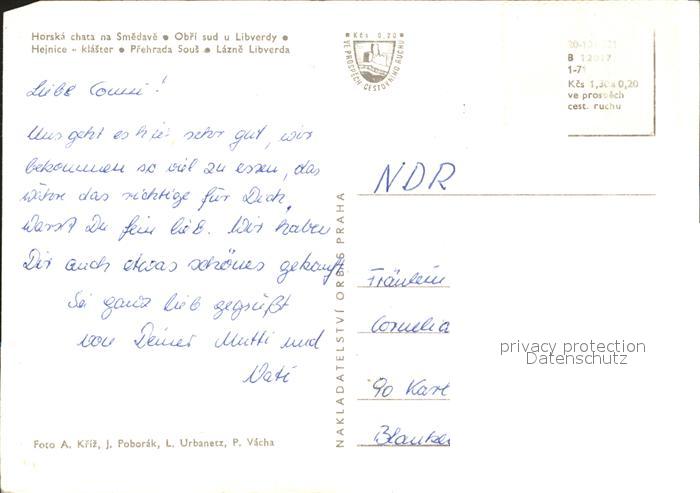 Horská chata na Smědavě • Obří sud u Libverdy •
Hejnice - klášter • Přehrada Souš • Lázně Libverda
Kčs 0,20
VE PROSPĚCH CESTOVNÍHO RUCHU
B 12017
1-71
Kčs 1,30a 0,20
ve prospěch
cest. ruchu
Liebe Conni!
Uns geht es hier sehr gut, wir
bekommen so viel zu essen, das
wäre das richtige für Dich.
Warst Du fein lieb. Wir haben
Dir auch etwas schönes gekauft
Sei ganz lieb gegrüßt
von Deiner Mutti und
Vati
NAKLADATELSTVÍ ORBIS PRAHA
NDR
Fräulein
Cornelia
90 Karl
privacy protection
Datenschutz
Foto A. Kříž, J. Poborák, L. Urbanetz, P. Vácha